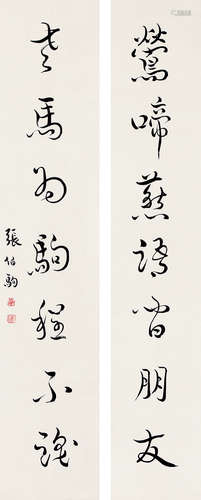 鶯啼燕語皆朋友
老馬為駒程不
張伯駒